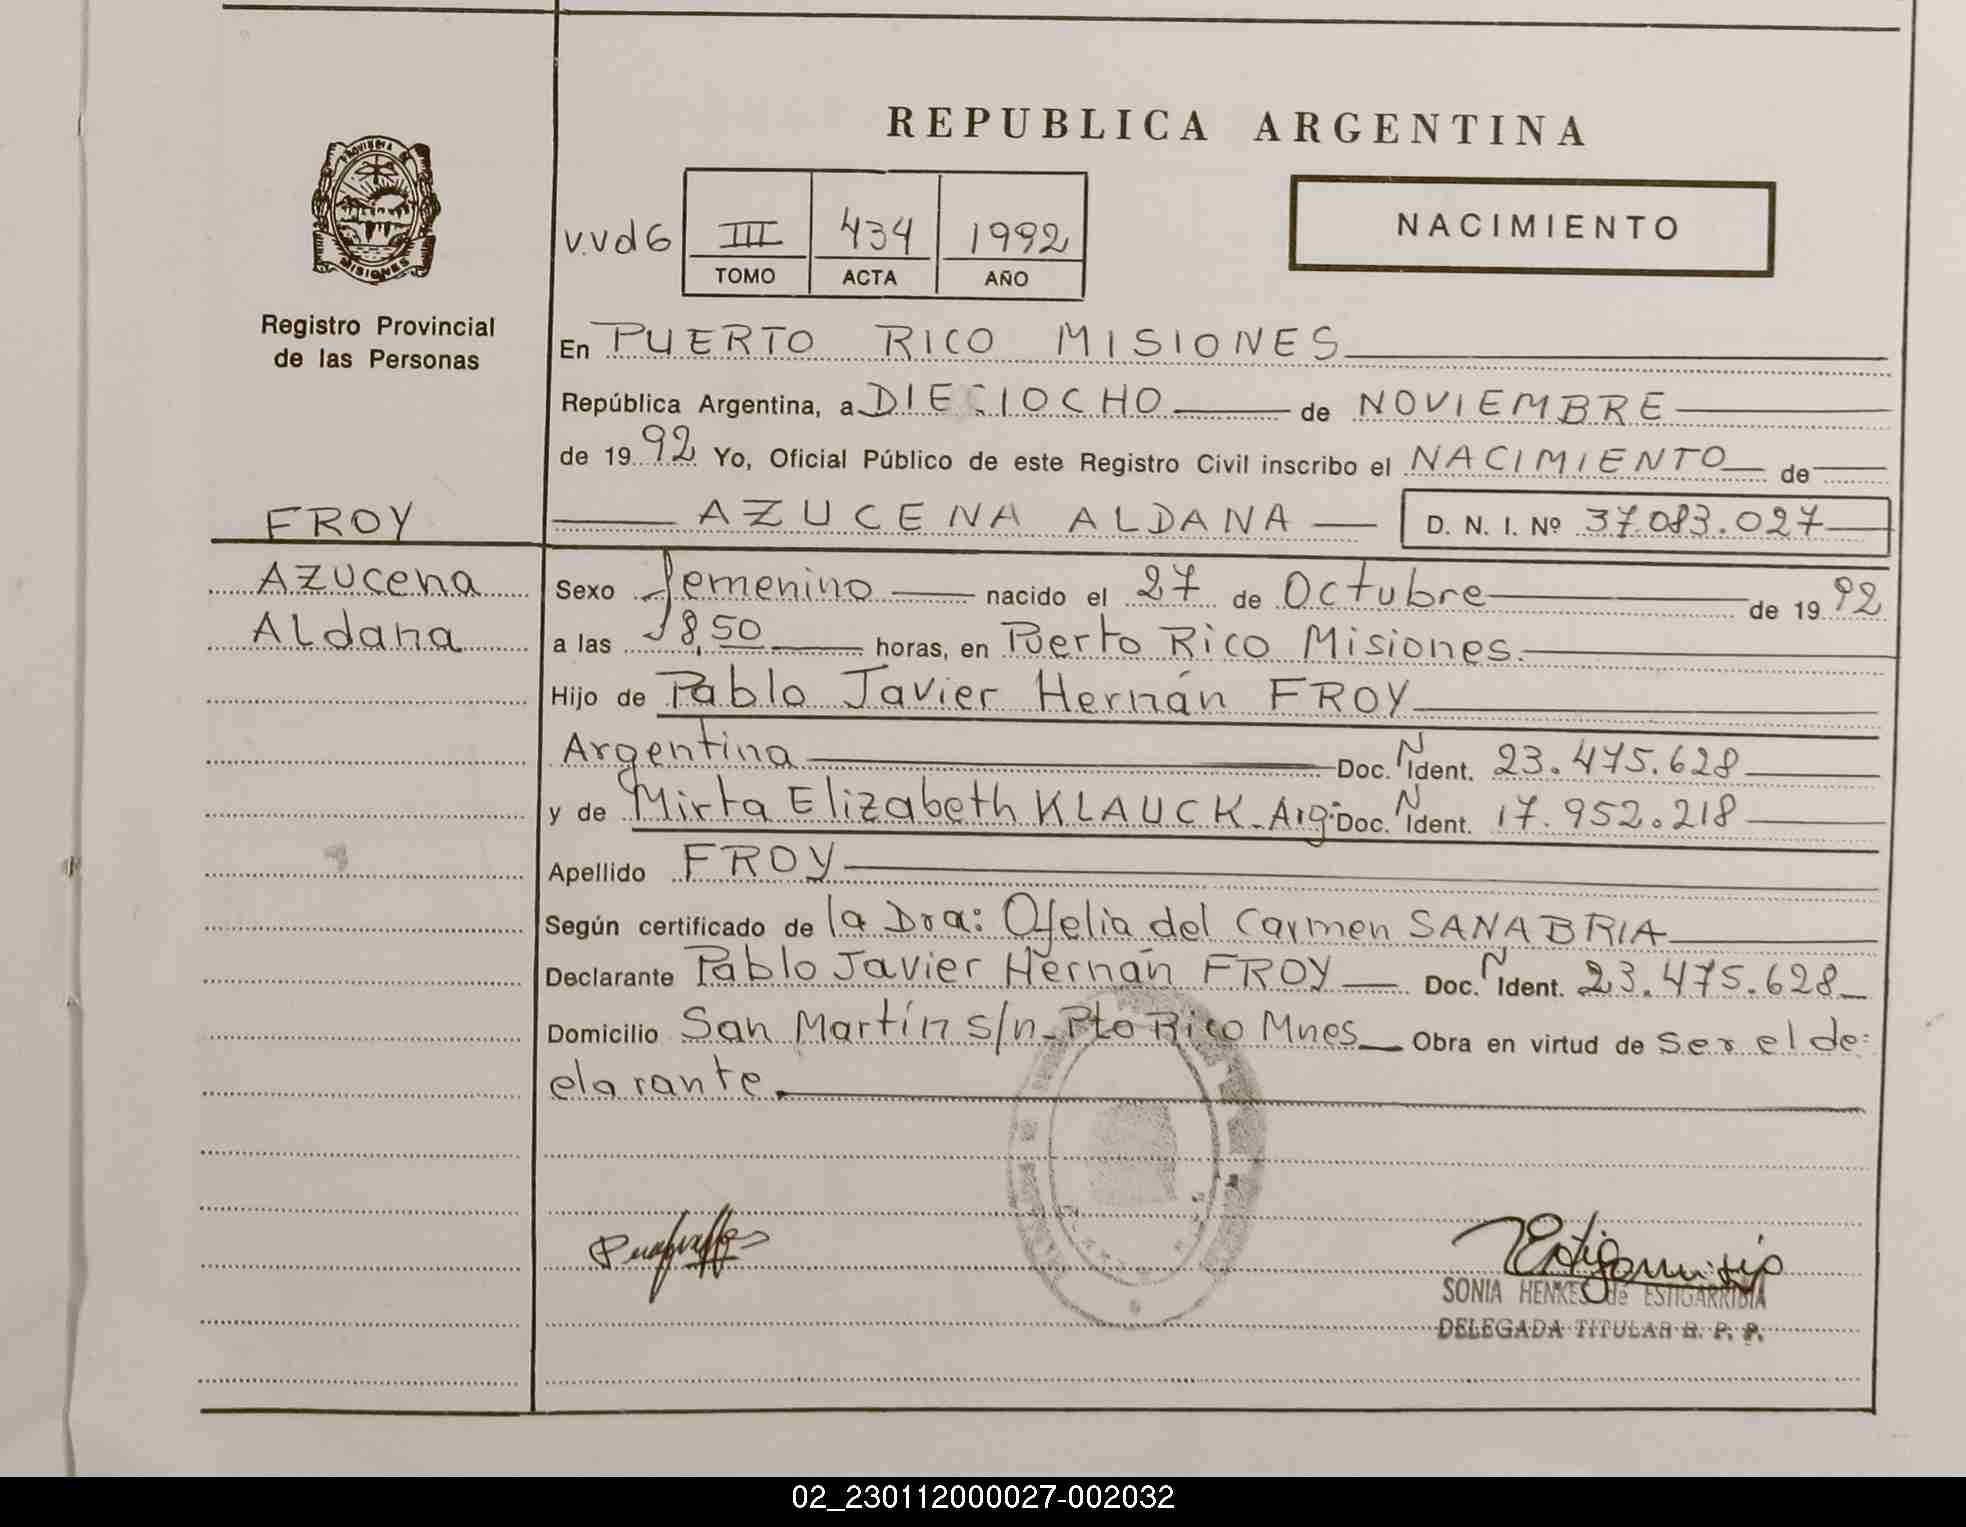 REPUBLICA ARGENTINA
PROVINCIA DE
MISIONES
Registro Provincial
de las Personas
v.vd6 III 434 1992
TOMO ACTA AÑO
NACIMIENTO
En PUERTO RICO MISIONES
República Argentina, a DIECIOCHO de NOVIEMBRE
de 1992 Yo, Oficial Público de este Registro Civil inscribo el NACIMIENTO de
FROY
AZUCENA ALDANA D. N. I. Nº 37.083.027
Azucena
Aldana
Sexo femenino nacido el 27 de Octubre de 1992
a las 18,50 horas, en Puerto Rico Misiones.
Hijo de Pablo Javier Hernán FROY
Argentina Doc. N Ident. 23.475.628
y de Mirta Elizabeth KLAUCK. Arg. Doc. N Ident. 17.952.218
Apellido FROY
Según certificado de la Dra: Ofelia del Carmen SANABRIA
Declarante Pablo Javier Hernán FROY Doc. N Ident. 23.475.628
Domicilio San Martín s/n Pto Rico Mnes Obra en virtud de ser el de=
clarante.
SONIA HENKES de ESTIGARRIBIA
DELEGADA TITULAR R. P. P.
02_230112000027-002032